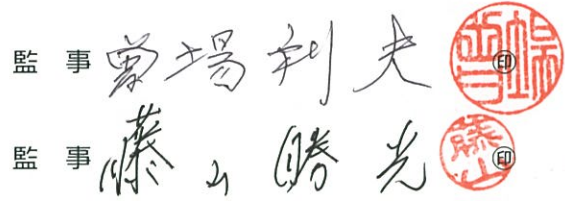 監 事 曽場利夫 ㊞
監 事 藤山勝光 ㊞